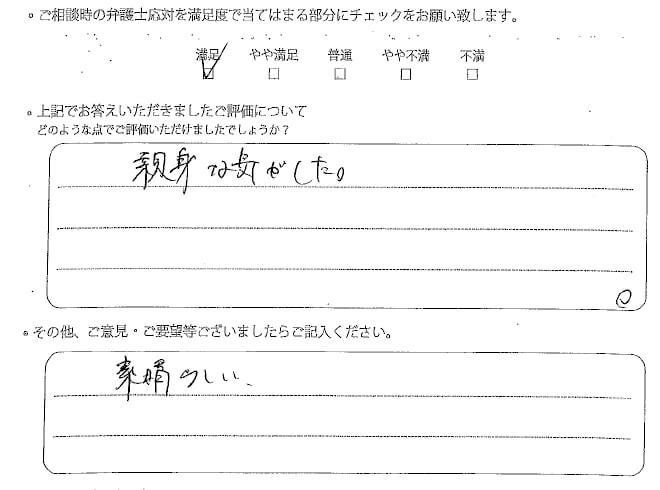 。ご相談時の弁護士応対を満足度で当てはまる部分にチェックをお願い致します。
満足 やや満足 普通 やや不満 不満
☑ □ □ □ □
。上記でお答えいただきましたご評価について
どのような点でご評価いただけましたでしょうか？
親身な気がした。
。その他、ご意見・ご要望等ございましたらご記入ください。
素晴らしい、